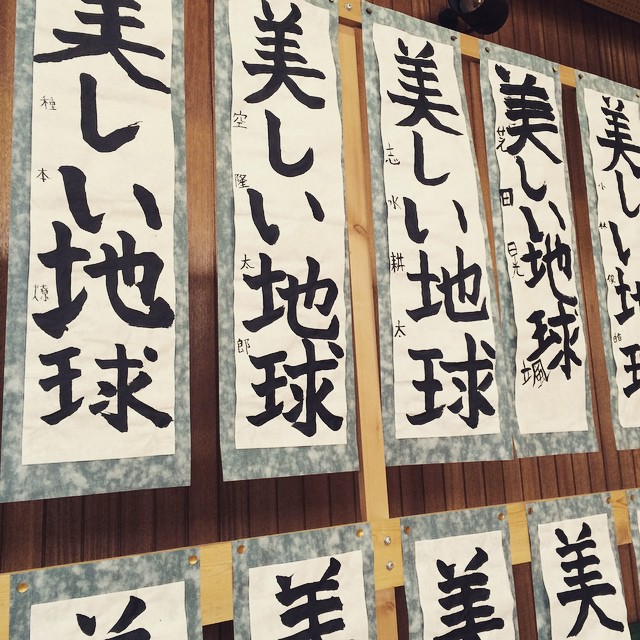 美しい地球
種本
美しい地球
空 隆太郎
美しい地球
志水耕太
美しい地球
日
颯
美しい地球
小林
美
美
美
美